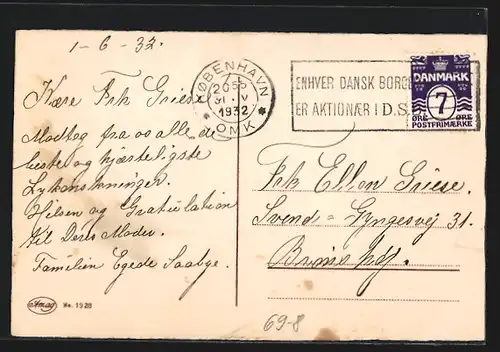 1-6-32.
Kære Frk Griese
Modtag fra os alle de
beste og hjærteligste
Lykønskninger.
Hilsen og Gratulation
til Deres Moder.
Familien Egede Saabye.
Amag No. 1928
KØBENHAVN
1932
* OMK *
ENHVER DANSK BORGE
ER AKTIONÆR I D.S.
DANMARK
7
ØRE ØRE
POSTFRIMÆRKE
Frk Ellen Griese.
Svend-Gyngesvej 31.
69-8